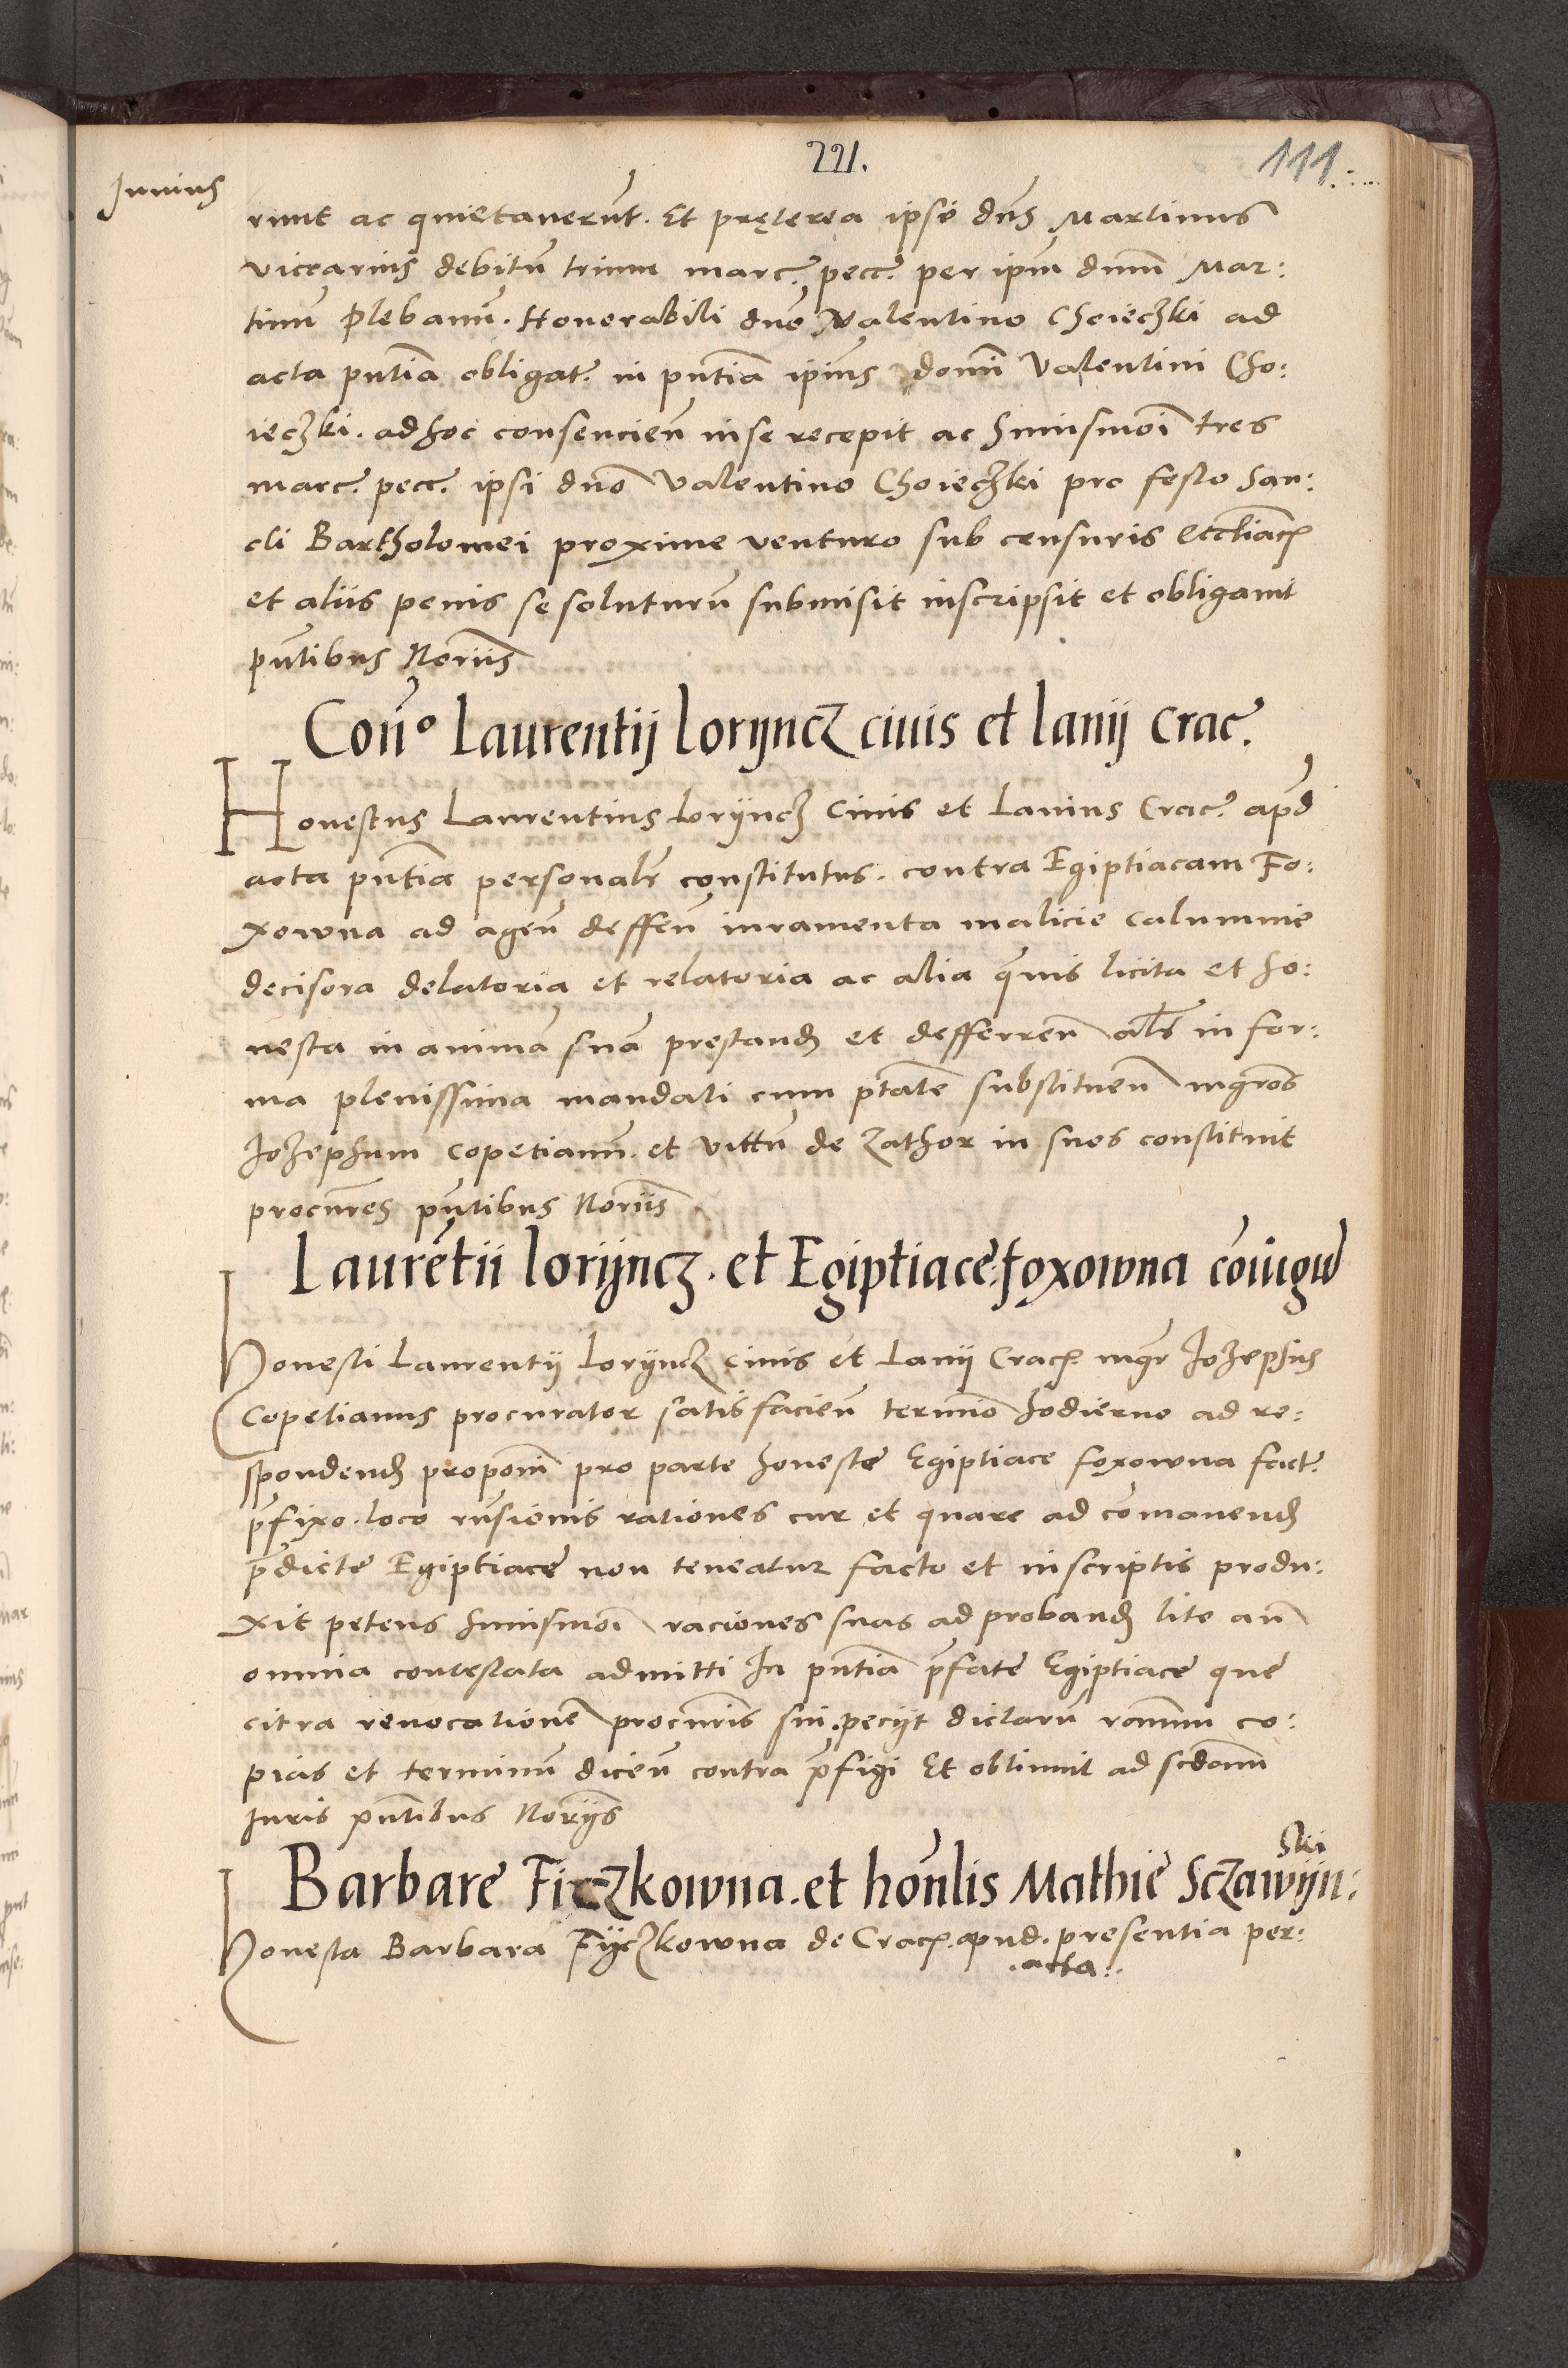 221.
111
Junius
runt ac quietaverūt. Et pręterea ipse dn̄s Martinus
viccarius debitū trium marc. pecc. per ipm̄ dnm̄ Mar:
tinū Plebanū. Honorabili dnō Valentino Choieczki ad
acta pn̄tia obligat. in pn̄tia ipīus domī Valentini Cho:
ieczki. ad hoc consencien̄ in se recepit ac huiusmōi tres
marc. pecc. ipsi dnō Valentino Choieczki pro festo San:
cti Bartholomei proxime venturo sub censuris eccliac̄
et aliis penis se soluturū submisit inscripsit et obligavit
pn̄tibus Noriis
Con̄o Laurentij Lorÿncz civis et lanij Crac.
Honestus Laurentius Lorÿncz civis et Lanius Crac. apd̄
acta pn̄tia personalr̄ constitutus. contra Egiptiacam Fo:
xowna ad agen̄ deffen̄ iuramenta malicie calumnie
decisora delatoria et relatoria ac alia quevis licita et ho:
nesta in animā suā prestand et defferren̄ als̄ in for:
ma plenissima mandati cum ptāte substituen̄ mgrōs
Jozephum Copetianū. et Vittū de Zathor in suos constituit
procur̄es pn̄tibus Noriis
Laurētii Lorÿncz. et Egiptiace foxowna cōiugū
Honesti Laurentij Lorÿncz civis et Lanij Crac mgr̄ Jozephus
Copetianus procurator satisfacien̄ termīo hodierno ad re:
spondend proponī pro parte honeste Egiptiace foxowna fact.
p̄fixo. loco rn̄sionis rationes cur et quare ad cōmanend
p̄dicte Egiptiace non teneatur facto et in scriptis produ:
xit petens huiusmōi raciones suas ad proband lite an̄
omnia contestata admitti In pn̄tia p̄fate Egiptiace que
citra revocationē procur̄is sui. pecijt dictarū ranūm co:
pias et terminū dicen̄ contra p̄figi Et obtinuit ad scdam̄
Juris pn̄tibus Norijs
Barbare Ficzkowna. et honlis Mathie Sczawÿn:
ski
Honesta Barbara Fÿczkowna de Crac. apud. presentia per:
.acta:.